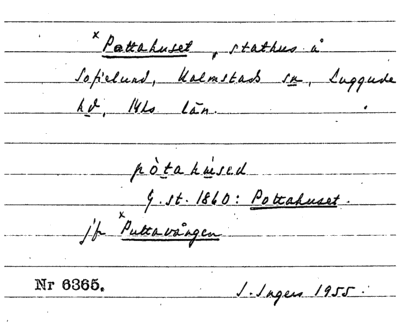 x Pottahuset, stathus å
Sofielund, Halmstads sn, Luggude
hd, Mhs län.
pòtahúsed
G.st. 1860: Pottahuset.
jfr x Puttavången
Nr 6365. I. Ingers 1955.